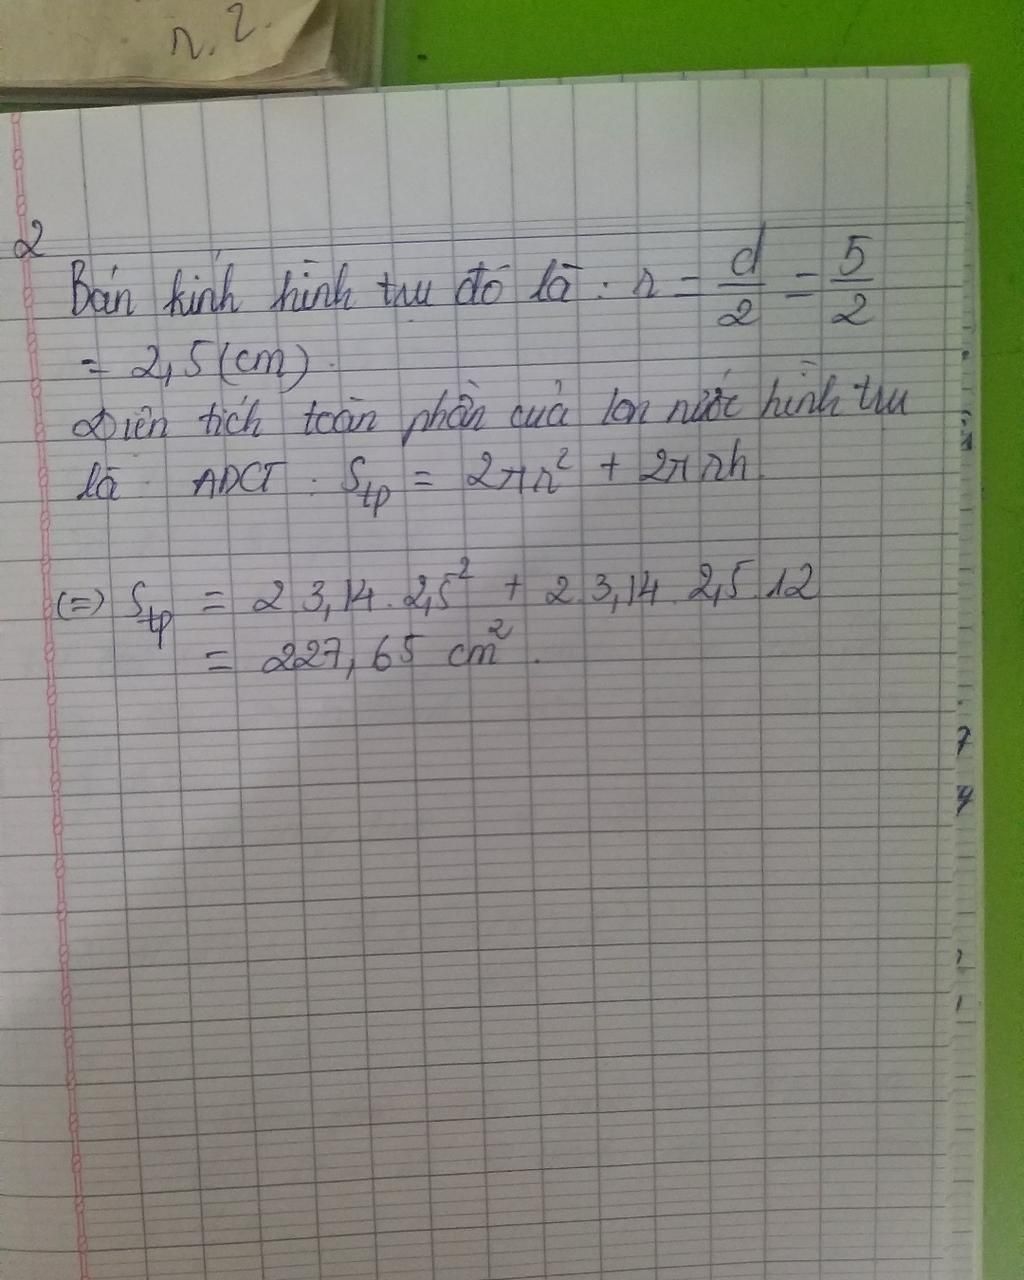 r.2.
2
Bán kính hình trụ đó là : r = d/2 = 5/2
= 2,5 (cm).
Diện tích toàn phần của lon nước hình trụ
là ADCT : Stp = 2πr² + 2πrh.
(=) Stp = 2 3,14. 2,5² + 2 3,14 2,5.12
= 227,65 cm².
7
4